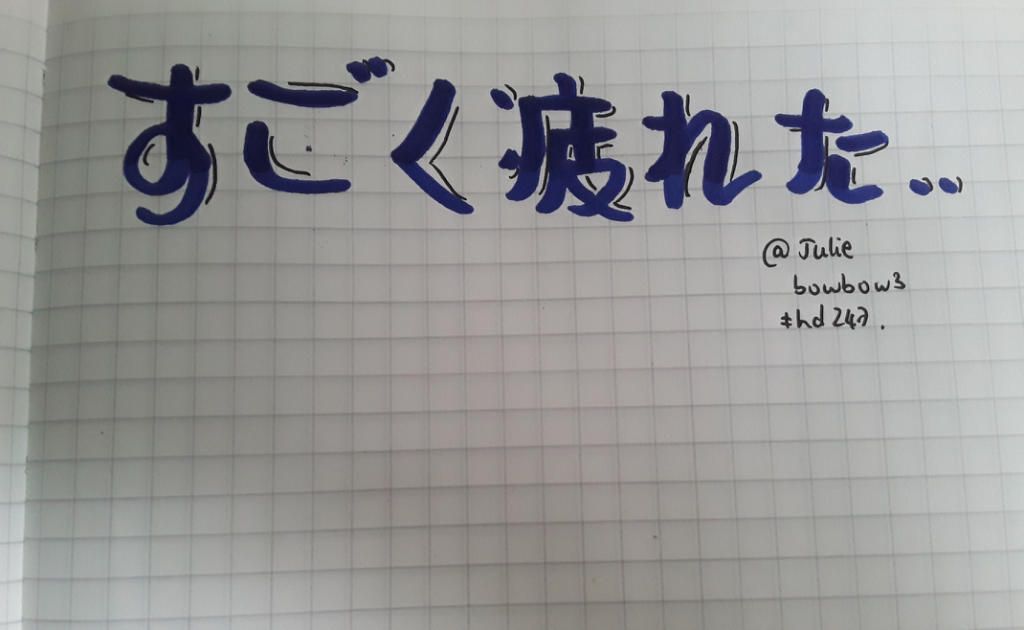 すごく疲れた..
@Julie
bowbow3
#hd247.